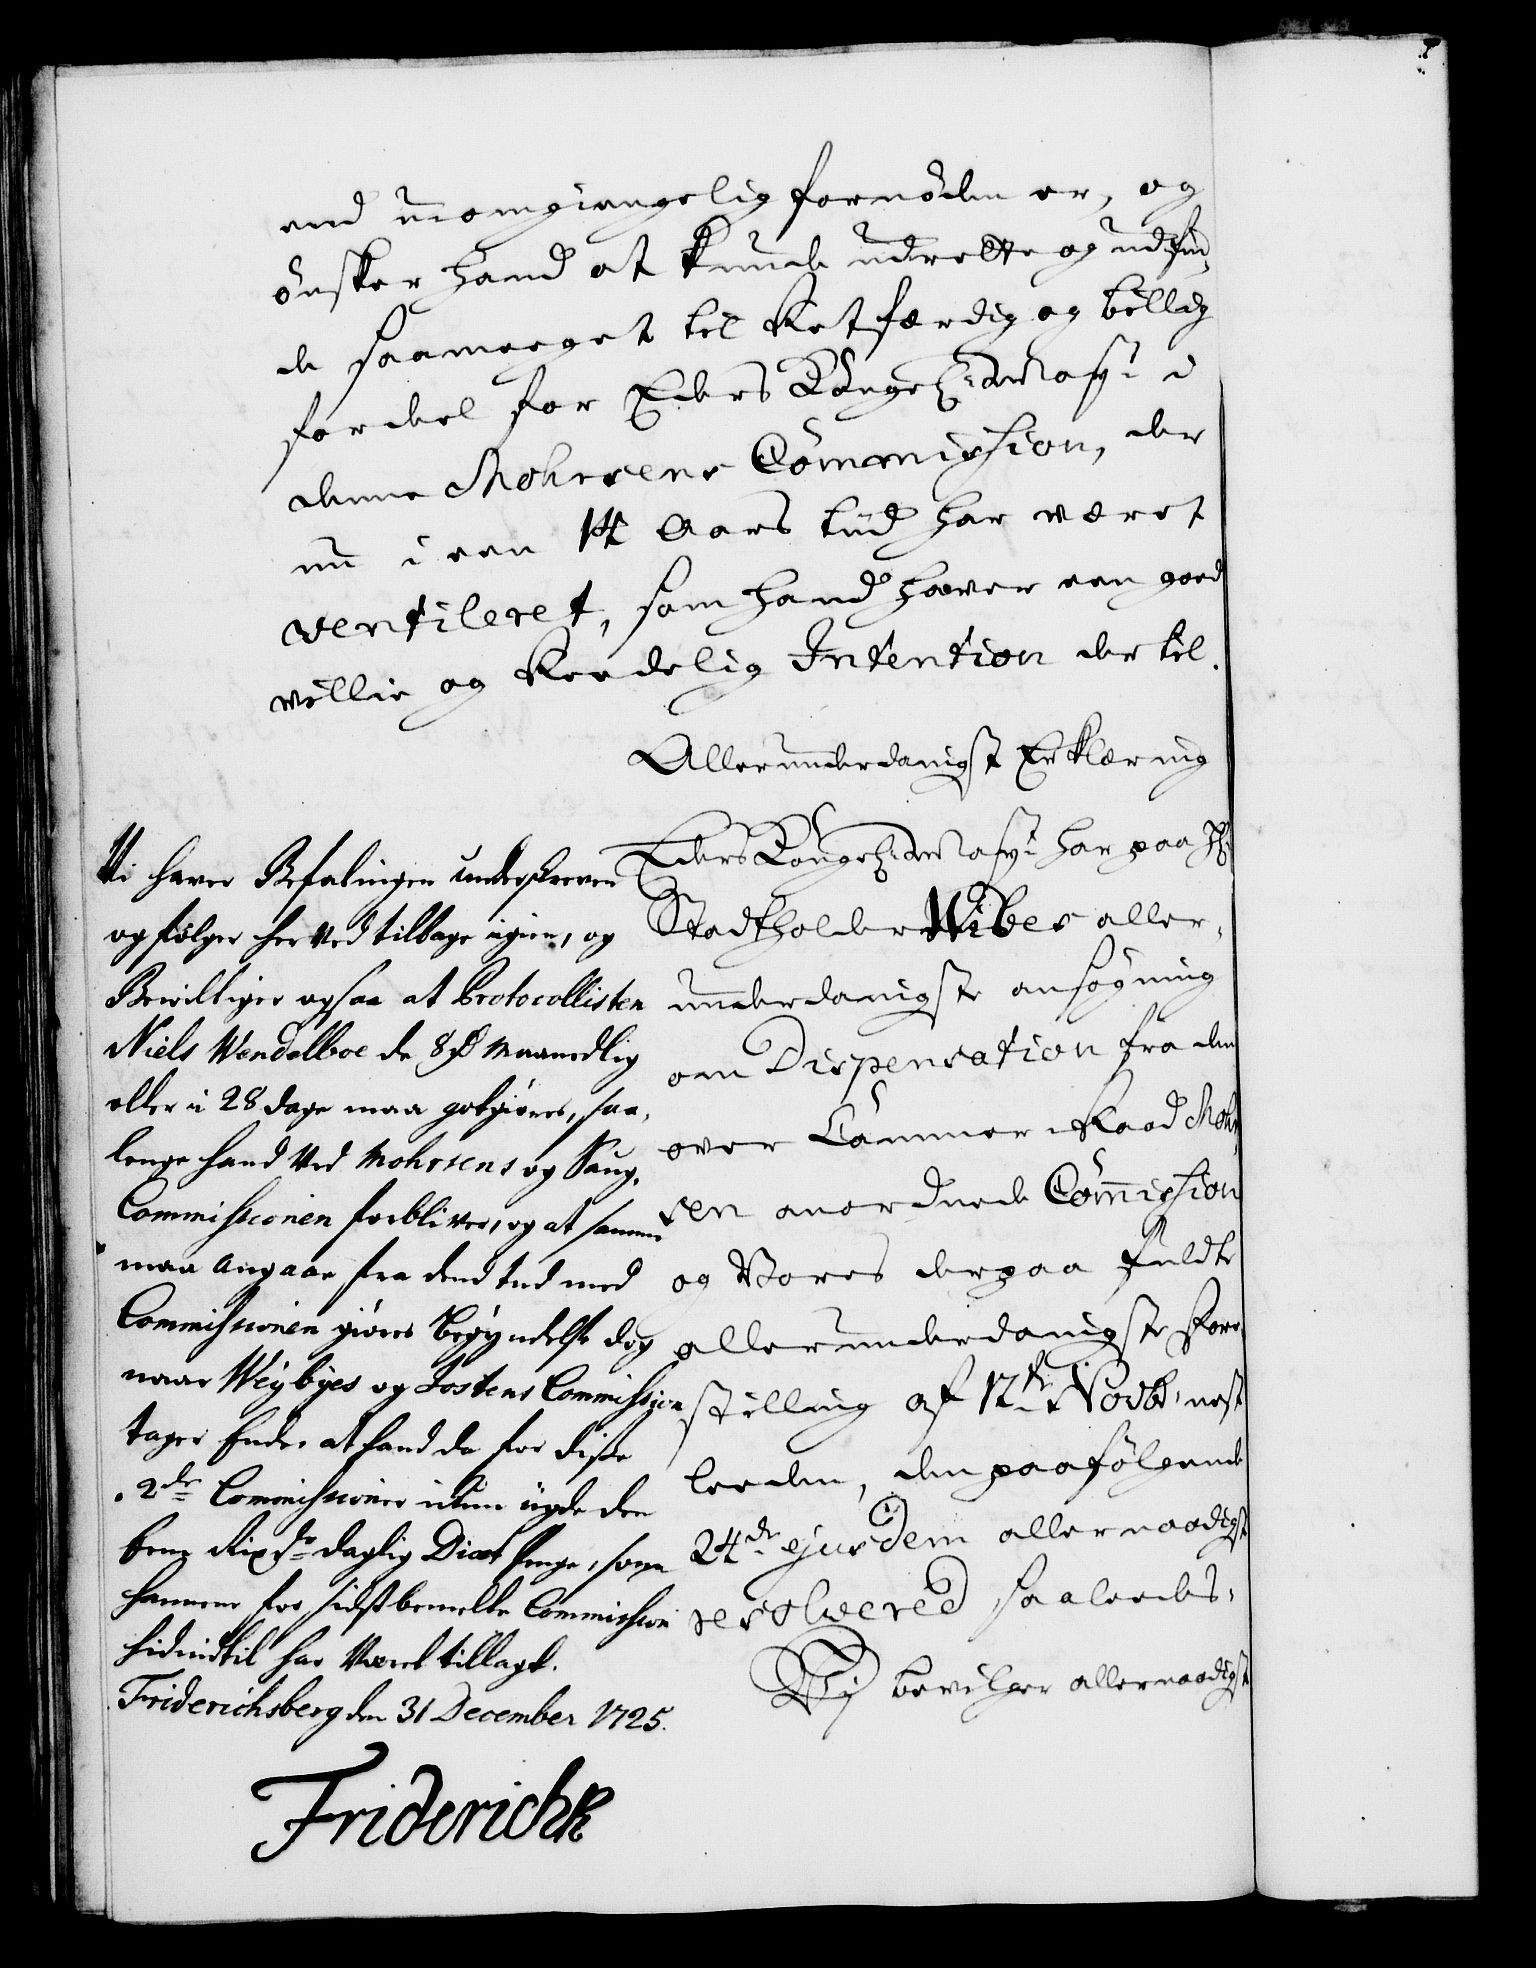 end uomgiengelig fornöden er, og
önsker hand at kunde udrette og udfin-
de saameeget til Retfærdig og billig
fordeel for Eders Kongel: May:t i
denne Mohrsens Commission, der
nu i een 14 Aars tiid har været
ventileret, som hand haver een goed
villie og Reedelig Intention dertil.
Allerunderdanigst Erklæring
Eders Kongel: May:t har paa
Stadtholder Wibes aller-
underdanigste ansögning
om Dispensation fra den
over Cammer Raad Mohr-
sen anordnede Commission
og Vores derpaa fuldte
allerunderdanigste Fore-
stilling af 12te Novbr: nest-
leeden, den paafölgende
24de ejusdem allernaadigst
resolvered saaledes:
Vj bevilger allernaadigst
Vi haver Befalingen underskreven
og fölger her Ved tilbage igien, og
Bewilliger ogsaa at Protocollisten
Niels Wendelboe de 8 rd Maanedlig
eller i 28 dage maa godgiöres, saa-
lenge hand Ved Mohrsens og Saug-
Commissionen forbliver, og at samme
maa angaae fra dend tid med
Commissionen giöres Begyndelse dog
naar Weybyes og Tostens Commission
tager Ende, at hand da for disse
2de Commissioner
Rixdr daglig Diæt Penge, som
hannem for sidstbemelte Commission
hidindtil har Været tillagt.
Friderichsberg den 31 December 1725.
Friderich R